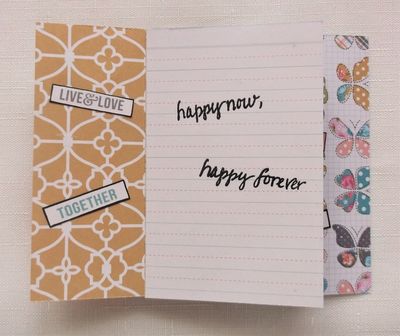 LIVE & LOVE
TOGETHER
happy now,
happy forever